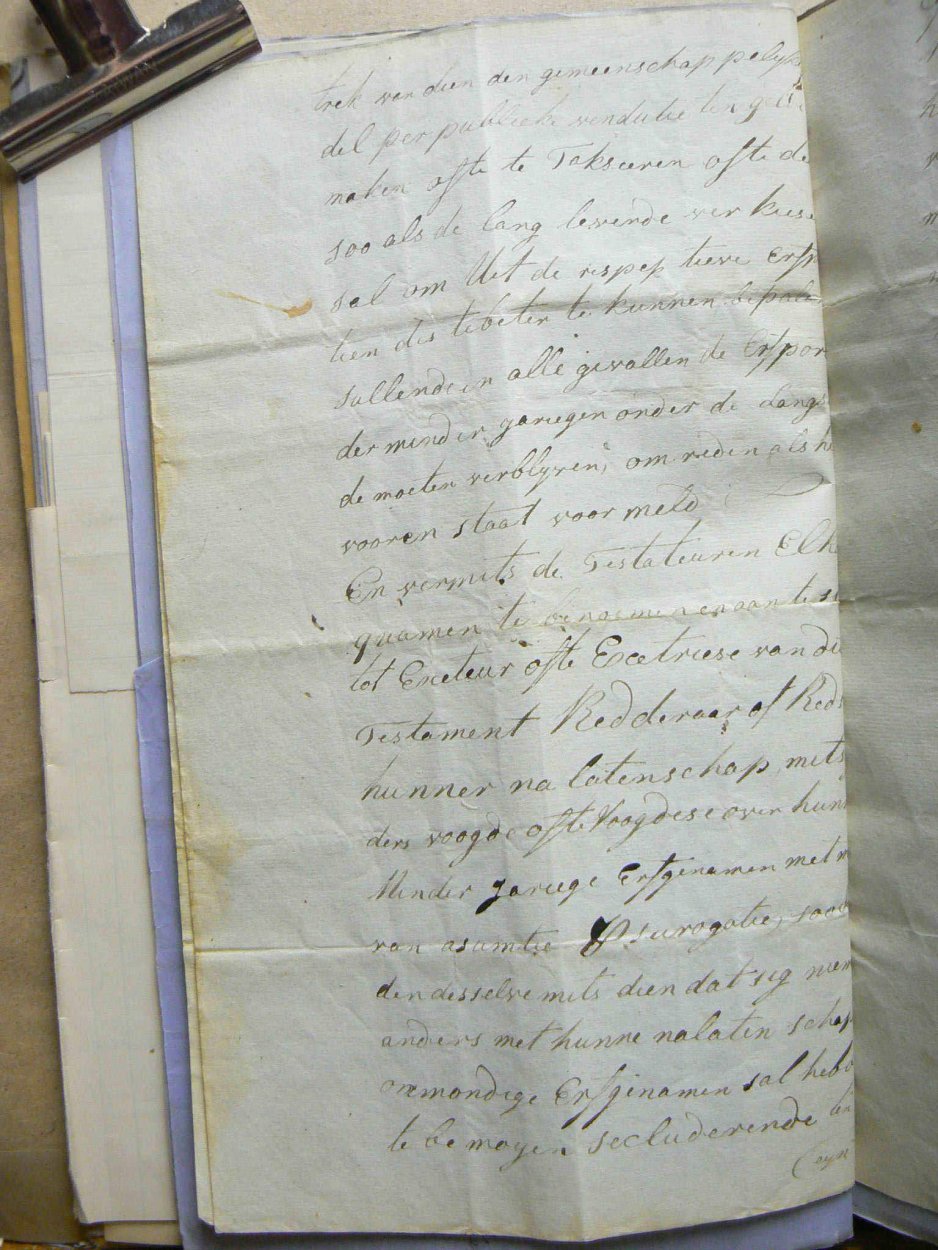 trek van dien den gemeenschappelyk
del per publieke vendutie ten gel
maken ofte te Takseeren ofte de
soo als de lang levende ver kiese
sal om Uet de respek tieve Erfp
tien des te beter te kunnen bepale
sullende in alle gevallen de Erfpor
der minder jariegen onder de Lang
de moeten verblyven, om reden als h
vooren staat voor meld
En vermits de Testateuren Elk
quamen te benoemen en aan te s
tot Exeteur ofte Excetriese van di
Testament Redderaar of Redd
hunner na latenschap, mits
ders voogde ofte Voogdese over hun
Minder jariege Erfgenamen met m
van asumtie & surogatie, soo
den desselve mits dien dat sig niem
anders met hunne nalaten schap
onmondige Erfgenamen sal hebb
te be moyen secluderende ten